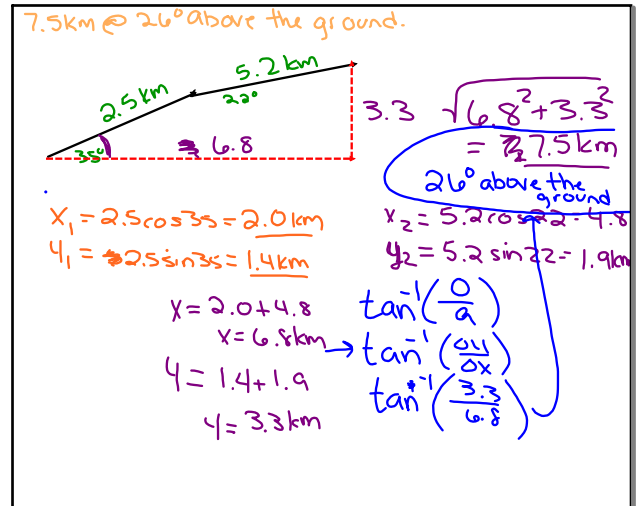 7.5km @ 26° above the ground.
2.5 km
5.2 km
22°
35°
6.8
3.3
√6.8²+3.3²
= 7.5km
26° above the
ground
x₁ = 2.5cos35 = 2.0km
y₁ = 2.5sin35 = 1.4km
x₂ = 5.2cos22 = 4.8
y₂ = 5.2 sin22 = 1.9km
x = 2.0+4.8
x = 6.8km
y = 1.4+1.9
y = 3.3km
tan⁻¹(O/a)
→ tan⁻¹(oy/ox)
tan⁻¹(3.3/6.8)